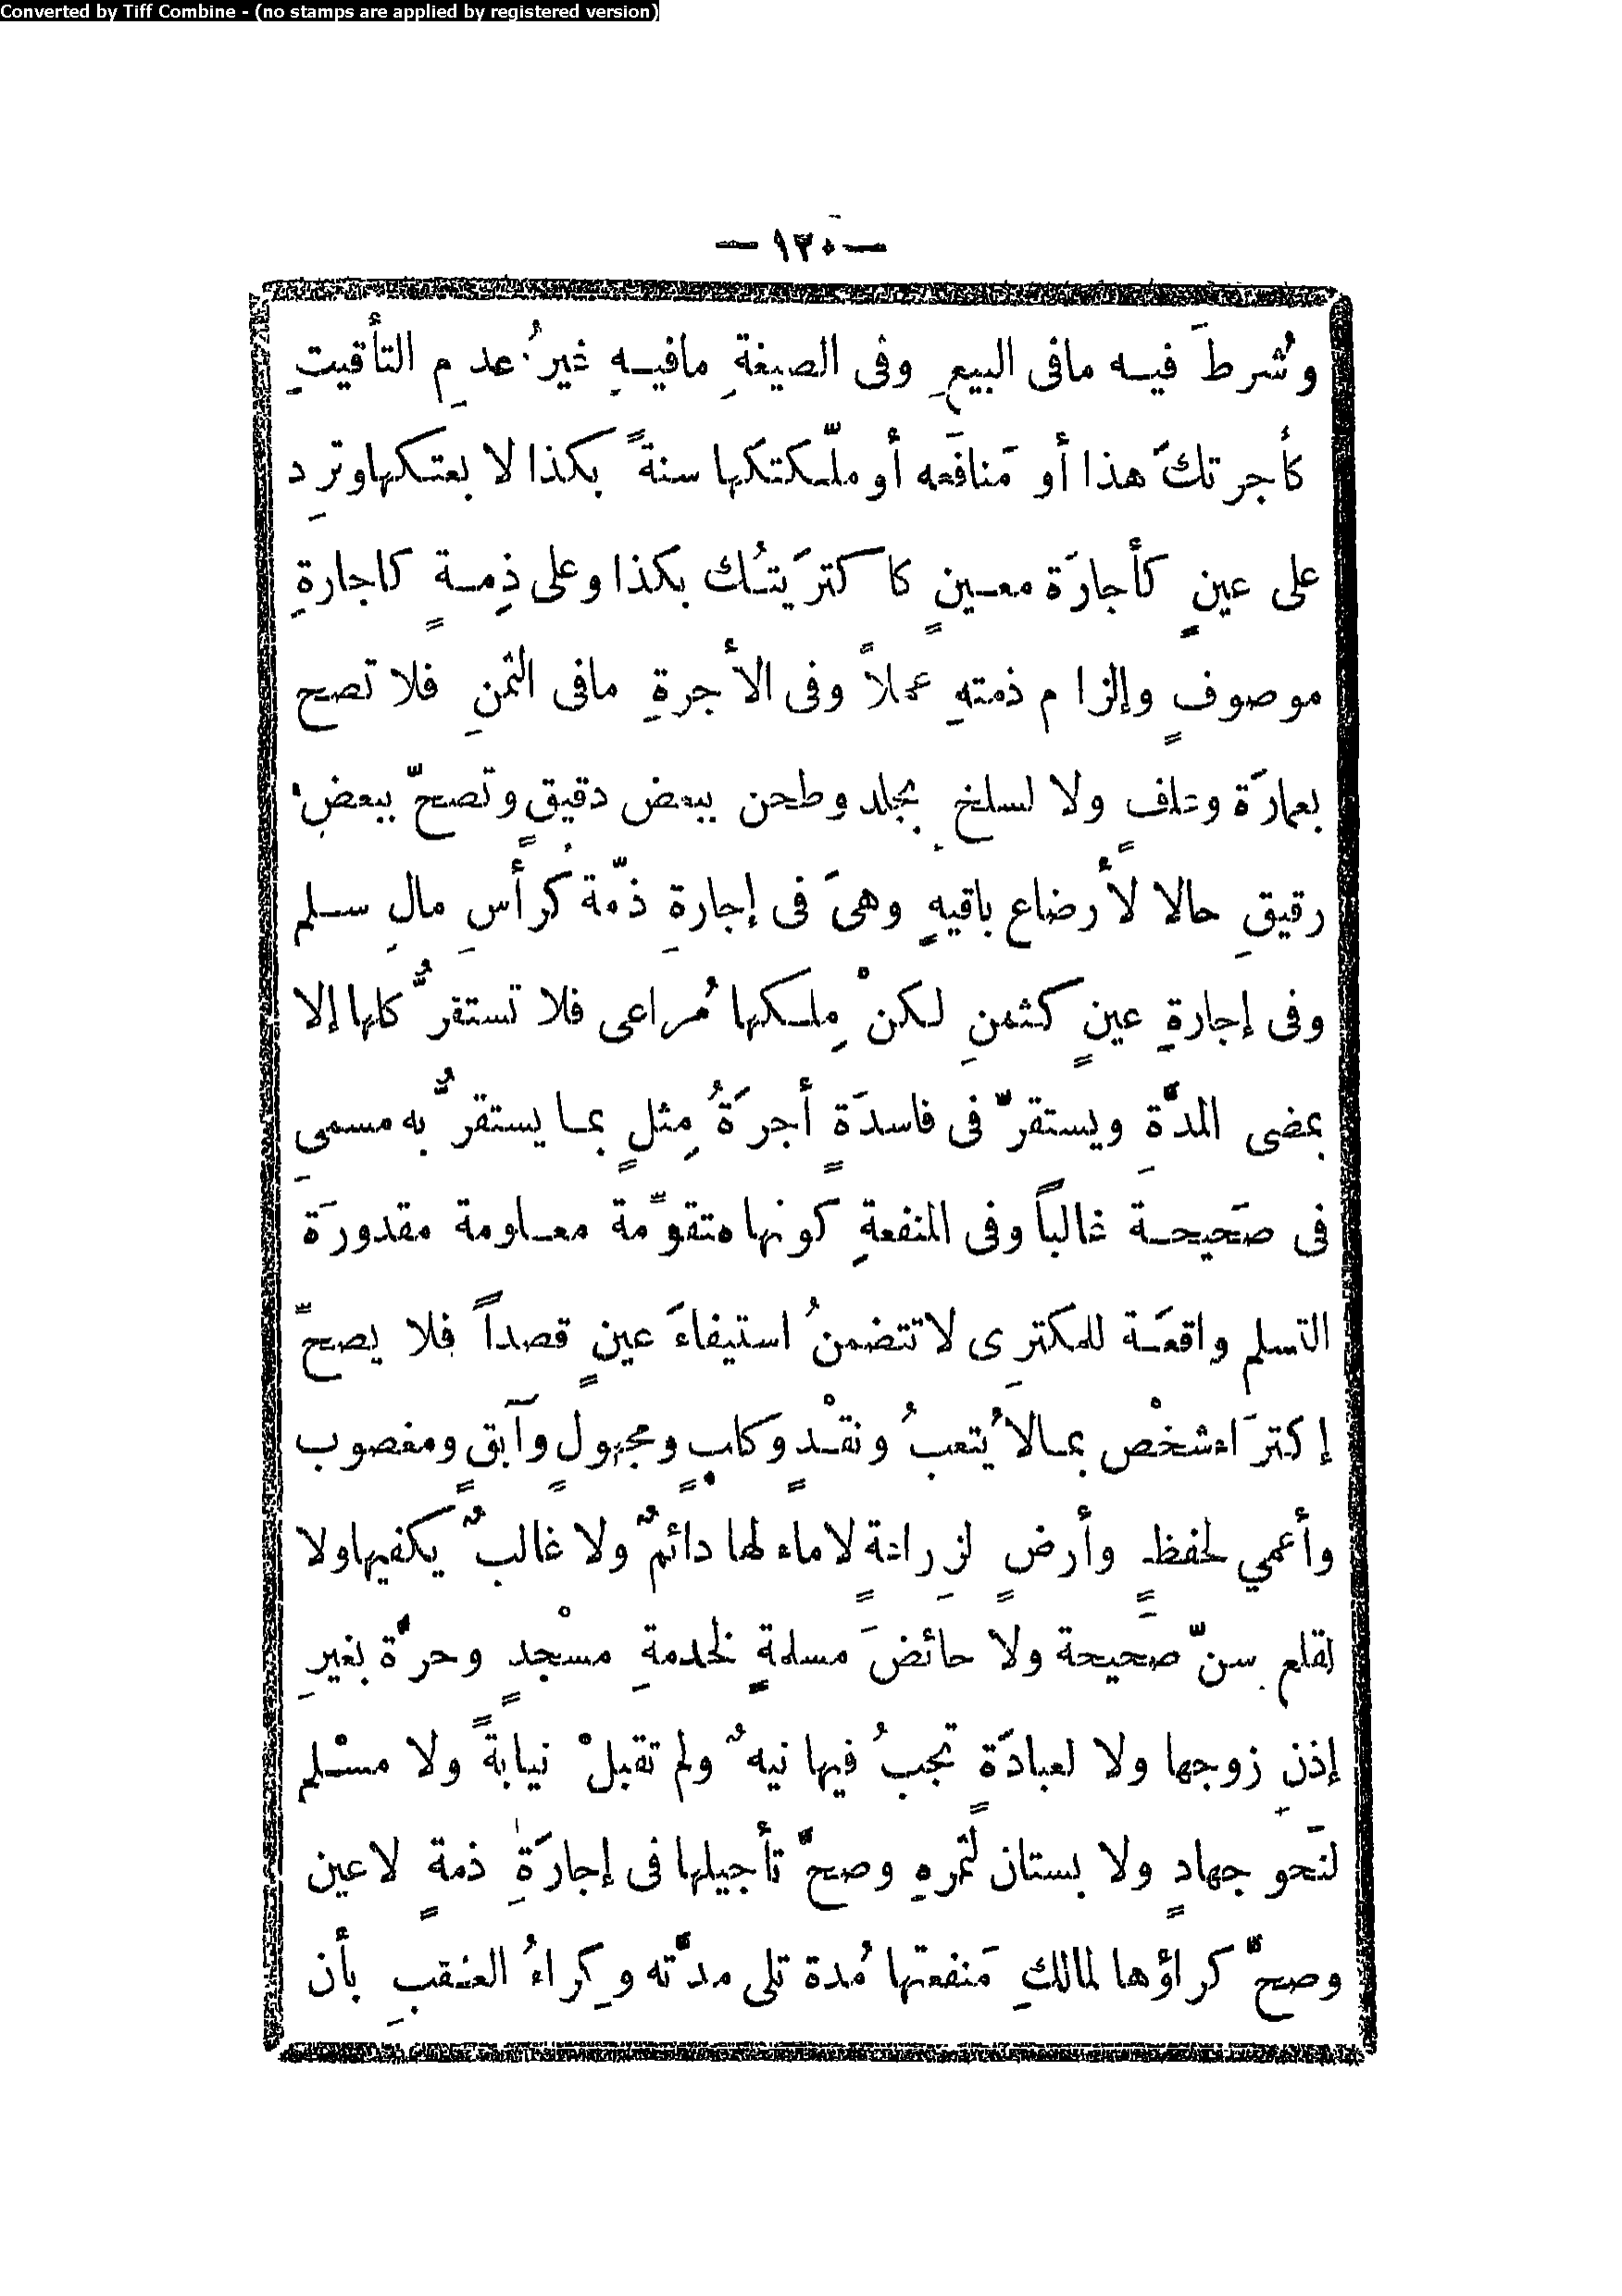 Converted by Tiff Combine - (no stamps are applied by registered version)
— ١٣٠ —
وشُرطَ فيه مافى البيعِ وفى الصيغةِ مافيهِ غيرُ عدمِ التأقيتِ
كأجرتكَ هذا أو مَنافعَه أو ملّكتكها سنةً بكذا لا بعتكها وتردِ
على عينٍ كأجارَة معينٍ كاكتريَتُك بكذا وعلى ذِمةٍ كاجارةِ
موصوفٍ وإلزام ذمتهِ عملاً وفى الأجرةِ مافى الثمنِ فلا تصح
بعمارَة وعلفٍ ولا لسلخ بجلد وطحن ببعض دقيقٍ وتصحّ ببعضِ
رقيقِ حالا لأرضاع باقيهِ وهىَ فى إجارةِ ذمّة كرأسِ مالِ سلم
وفى إجارةِ عينٍ كثمنِ لكنْ مِلكها مُراعى فلا تستقرُّ كلها إلا
بمضى المدَّةِ ويستقرّ فى فاسدَةٍ أجرَةُ مِثلٍ بما يستقرُّ به مسمىِ
فى صَحيحة غالباً وفى المنفعةِ كونها متقوّمة معلومة مقدورَة
التسلم واقعَة للمكترِى لاتتضمنُ استيفاءَ عينٍ قصداً فلا يصحّ
إكترَاءشخْص بمالاُيتعبُ ونقْدٍ وكلبٍ ومجهولٍ وآبقٍ ومغصوب
وأعمي لحفظٍ وأرضٍ لزِراعةٍ لاماء لها دائمٌ ولا غالبٌ يكفيها ولا
لقلع سنّ صَحيحة ولا حائضَ مسلمةٍ لخدمةِ مسْجدٍ وحرَّة بغيرِ
إذنِ زوجها ولا لعبادَةٍ تجبُ فيها نيهٌ ولم تقبلْ نيابةً ولا مسْلم
لنَحو جهادٍ ولا بستان لثمرهِ وصحَّ تأجيلها فى إجارَةِ ذمةٍ لاعين
وصحَّ كراؤها لمالكِ مَنفعتها مُدة تلى مدَّته وكِراءُ العقبِ بأن